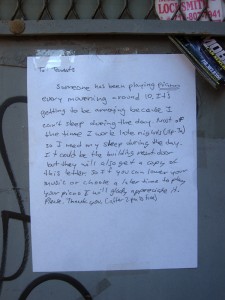 LOCKSMITH
To: Tenants
Someone has been playing piano
every mornning around 10, It's
getting to be annoying because I
can't sleep during the day. Most of
the time I work late nights (4p-7a)
so I need my sleep during the day.
It could be the building next door
but they will also get a copy of
this letter. So if you can lower your
music or choose a later time to play
your piano I will gladly appreciate it.
Please. Thank you (after 2pm is fine)